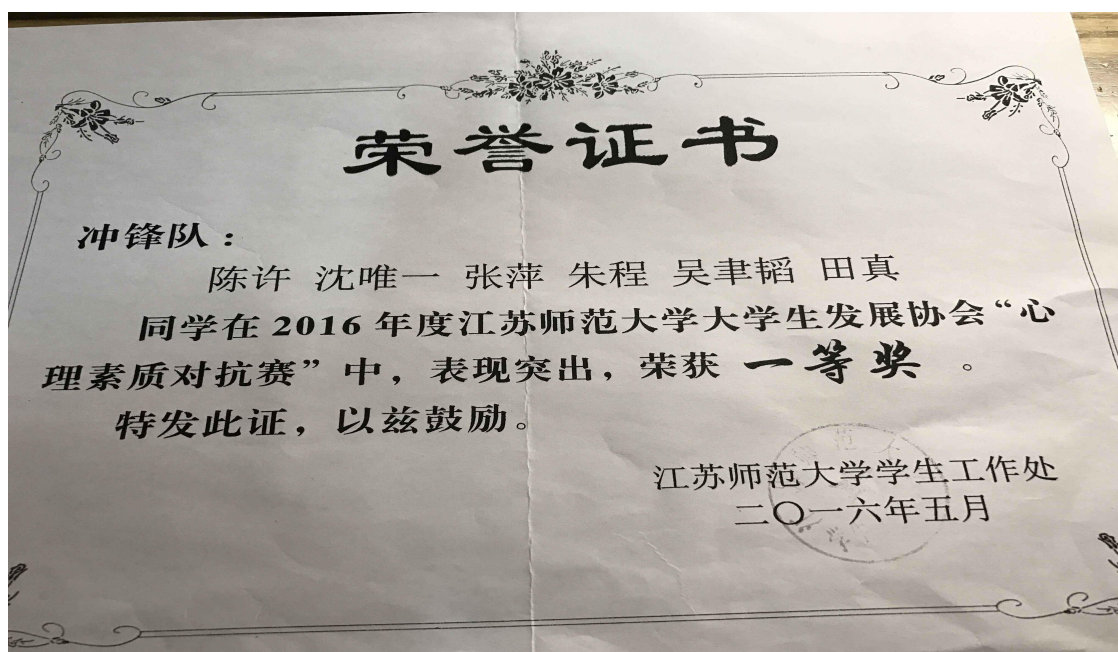 荣誉证书
冲锋队：
陈许 沈唯一 张萍 朱程 吴聿韬 田真
同学在 2016 年度江苏师范大学大学生发展协会“心
理素质对抗赛”中，表现突出，荣获 一等奖 。
特发此证，以兹鼓励。
江苏师范大学学生工作处
二〇一六年五月